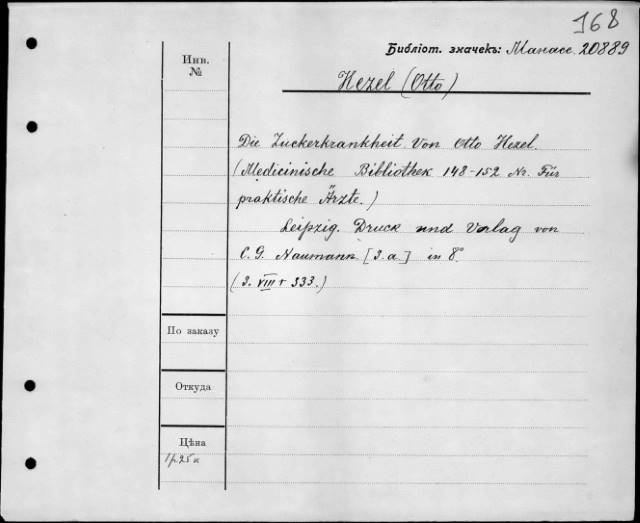 168
Библіот. значекъ: Манасс. 20889
Инв.
№
Hezel (Otto)
Die Zuckerkrankheit. Von Otto Hezel.
(Medicinische Bibliothek 148-152 Nr. Für
praktische Ärzte.)
Leipzig. Druck und Verlag von
C. G. Naumann. [s. a.] in 8°
(S. VIII + 333.)
По заказу
Откуда
Цѣна
1 р. 25 к